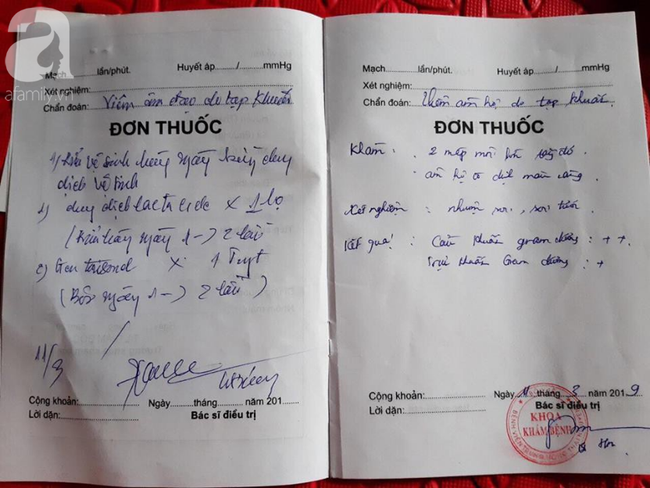 a
afamily.vn
Mạch............lần/phút. Huyết áp ....../..........mmHg
Xét nghiệm:
Chẩn đoán: Viêm âm đạo do tạp khuẩn
ĐƠN THUỐC
1) Rửa vệ sinh hàng ngày bằng dung
dịch vệ sinh
dung dịch lactacide x 1 lọ
(Rửa hàng ngày 1 -> 2 lần)
2) x 1 Tuýp
(Bôi ngày 1 -> 2 lần)
11/3
Cộng khoản:............ Ngày......tháng......năm 201....
Lời dặn: Bác sĩ điều trị
Mạch............lần/phút. Huyết áp ....../..........mmHg
Xét nghiệm:
Chẩn đoán: Viêm âm hộ do tạp khuẩn
ĐƠN THUỐC
Khám: 2 mép môi lớn tấy đỏ
âm hộ có dịch màu vàng
Xét nghiệm: nhuộm soi, soi tươi
Kết quả: Cầu khuẩn gram dương: ++
Trực khuẩn Gram dương: +
Cộng khoản:............ Ngày 11 tháng 3 năm 2019
Lời dặn: Bác sĩ điều trị
KHOA
KHÁM BỆNH